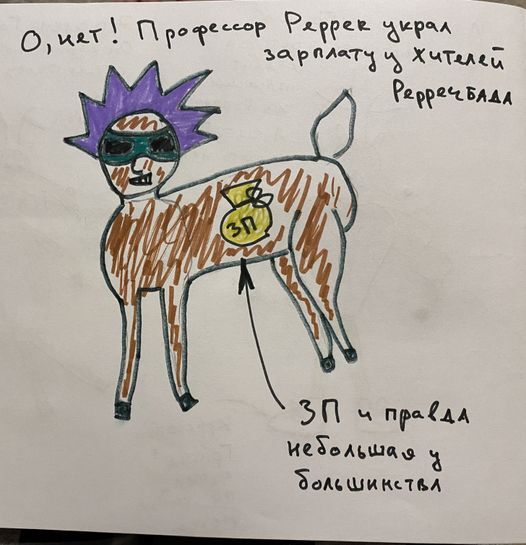 О, нет! Профессор Реррек украл
зарплату у жителей
РерречБАДА
ЗП
ЗП и правда
небольшая у
большинства